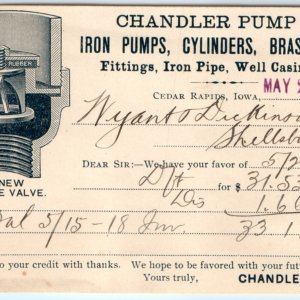 CHANDLER PUMP
IRON PUMPS, CYLINDERS, BRAS
Fittings, Iron Pipe, Well Casin
CEDAR RAPIDS, IOWA,
MAY 2
RUBBER
Wyant & Dickinson
Shellsb
DEAR SIR:—We have your favor of 5/2
Dft for $ 31.5
Dis 1.6
Bal 5/15-18 Inv 33 1
NEW
E VALVE.
to your credit with thanks. We hope to be favored with your futu
Yours truly, CHANDLE